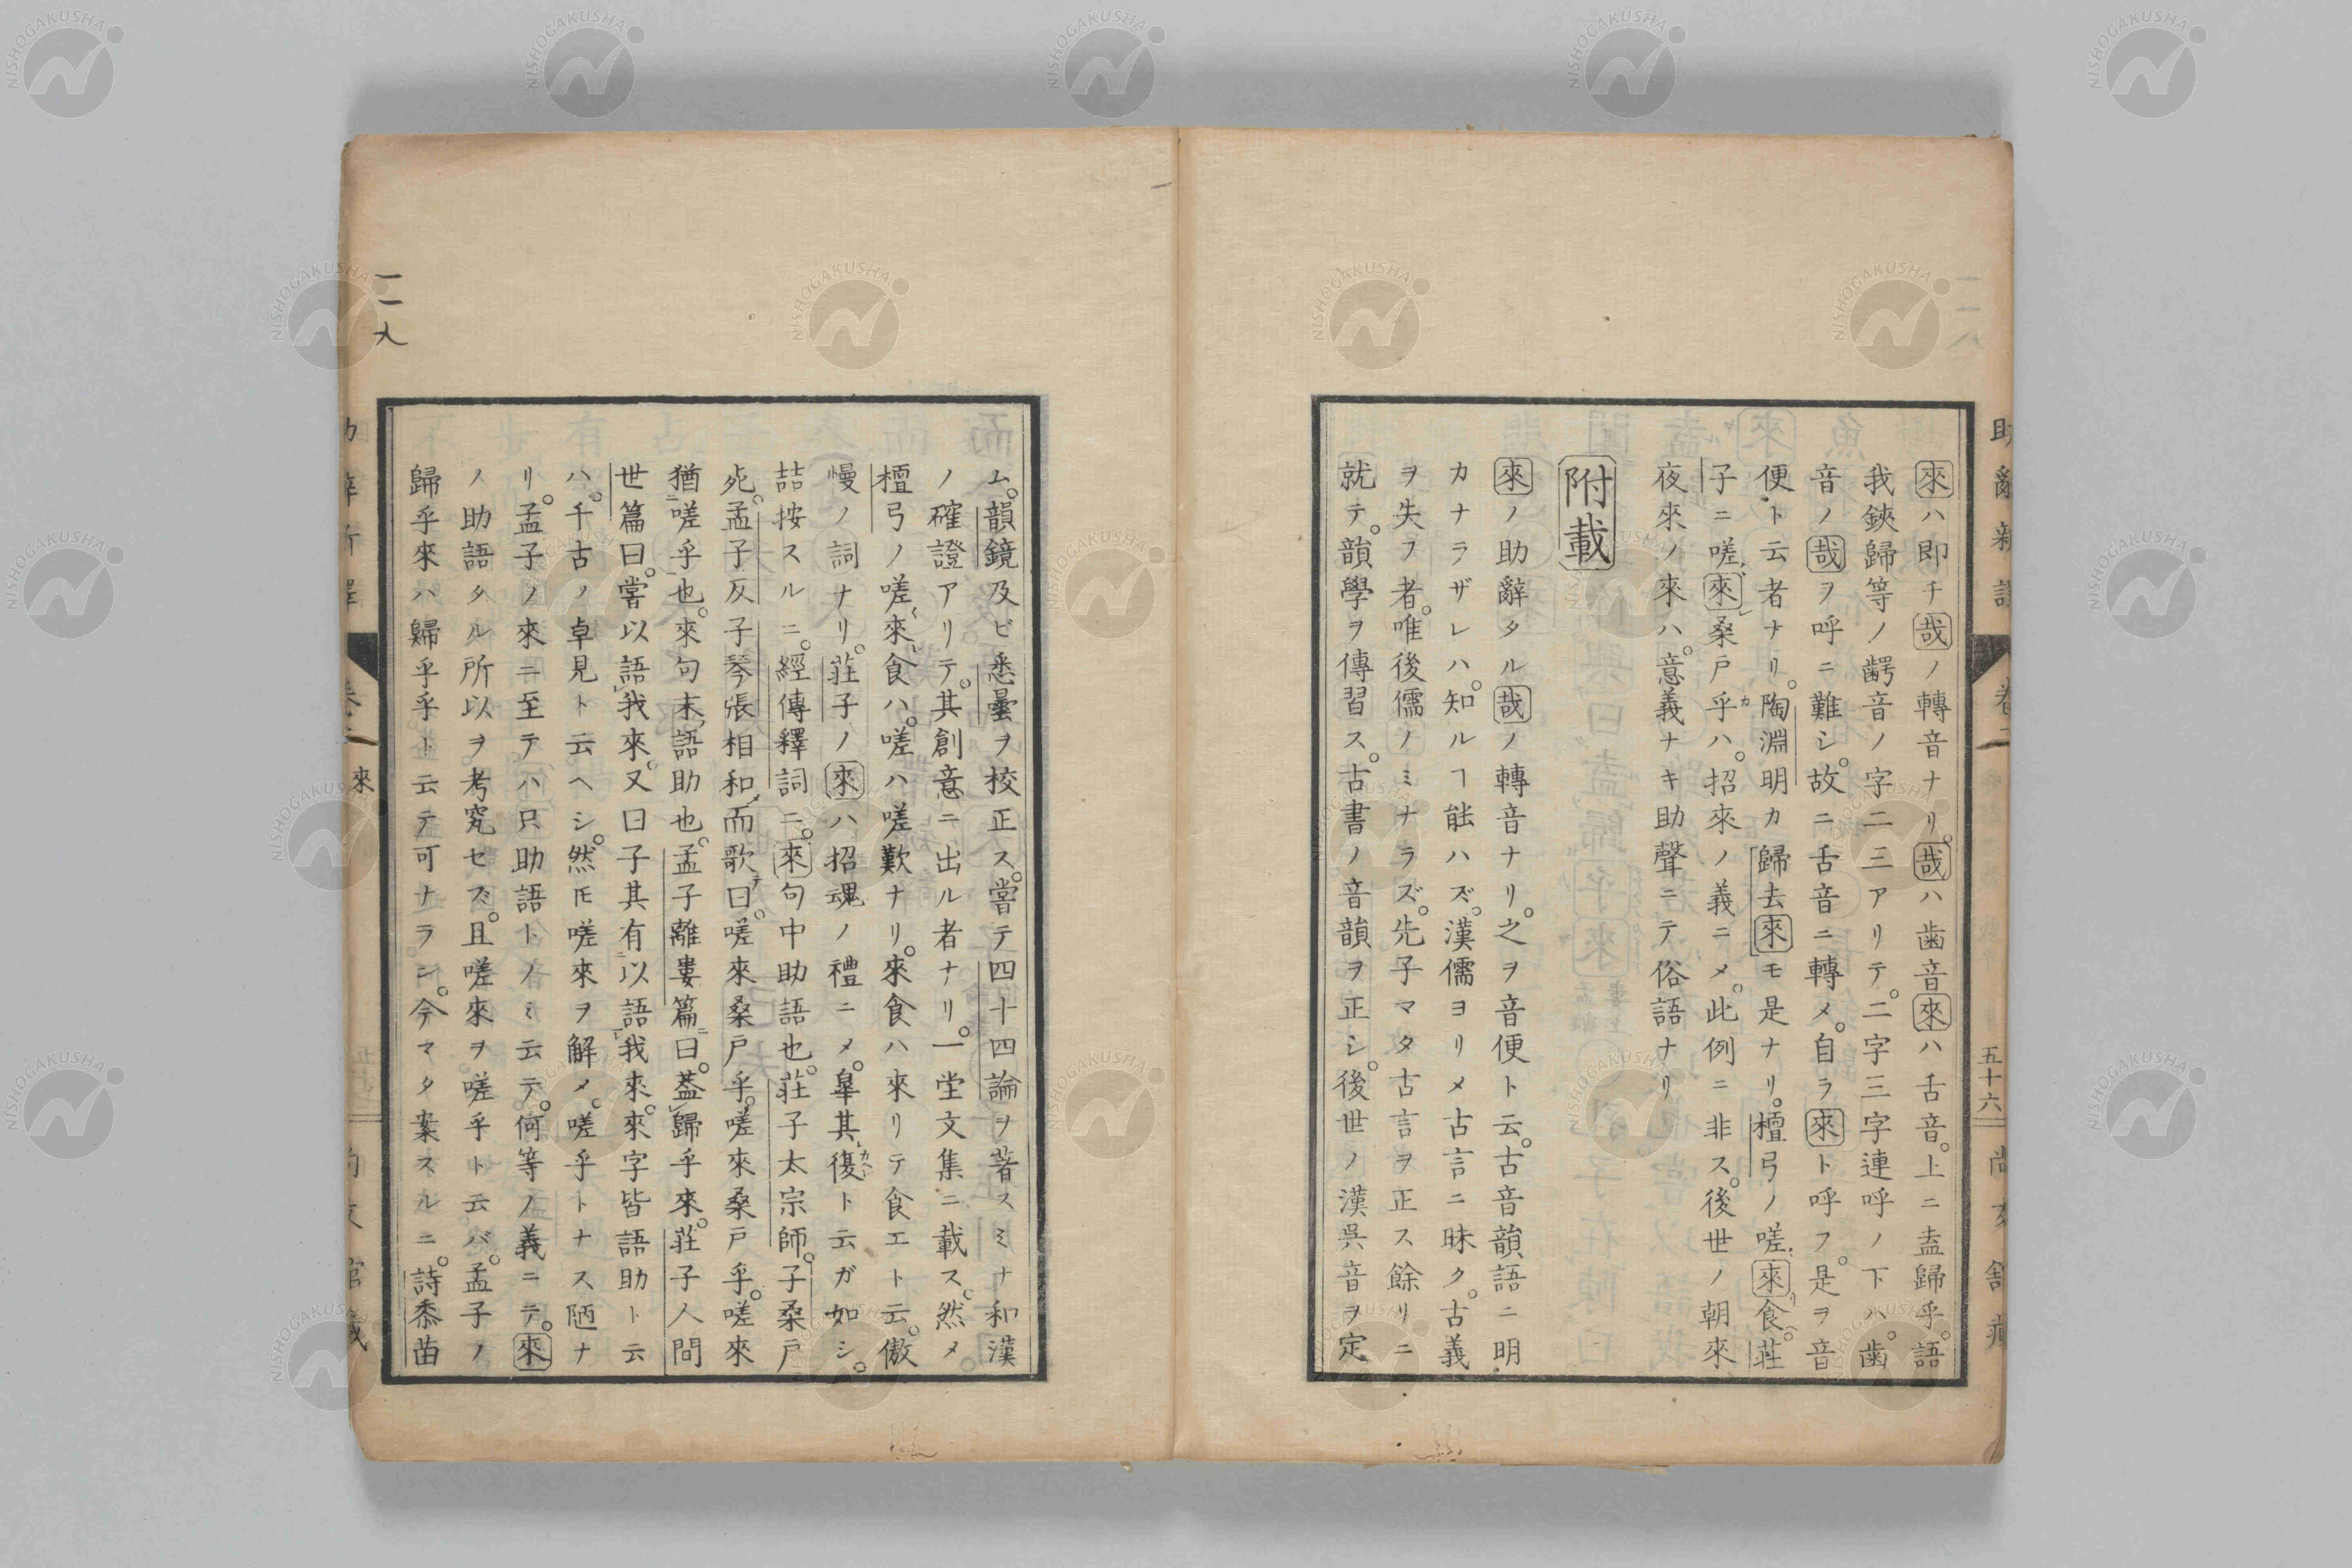 來ハ即チ哉ノ轉音ナリ。哉ハ歯音來ハ舌音。上ニ盍歸乎。語
我鋏歸等ノ齶音ノ字二三アリテ。二字三字連呼ノ下ハ。歯
音ノ哉ヲ呼ニ難シ。故ニ舌音ニ轉メ。自ラ來ト呼フ。是ヲ音
便ト云者ナリ。陶淵明カ歸去來モ是ナリ。檀弓ノ嗟來食。荘
子ニ嗟來桑戸乎ハ。招來ノ義ニメ。此例ニ非ス。後世ノ朝來
夜來ノ來ハ。意義ナキ助聲ニテ俗語ナリ
附載
來ノ助辭タル哉ノ轉音ナリ。之ヲ音便ト云。古音韻語ニ明
カナラザレハ。知ルヿ能ハズ。漢儒ヨリメ古言ニ昧ク。古義
ヲ失フ者。唯後儒ノミナラズ。先子マタ古言ヲ正ス餘リニ
就テ。韻學ヲ傳習ス。古書ノ音韻ヲ正シ。後世ノ漢呉音ヲ定
助辭新譯
卷二
五十六
ム。韻鏡及ビ悉曇ヲ校正ス。嘗テ四十四論ヲ著スミナ和漢
ノ確證アリテ。其創意ニ出ル者ナリ。一堂文集ニ載ス。然メ
檀弓ノ嗟來食ハ。嗟ハ嗟歎ナリ。來食ハ來リテ食エト云。傲
慢ノ詞ナリ。荘子ノ來ハ招魂ノ禮ニメ。皐其復ト云ガ如シ。
喆按スルニ。經傳釋詞ニ。來句中助語也。荘子太宗師。子桑戸
死。孟子反子琴張相和而歌曰。嗟來桑戸乎。嗟來桑戸乎。嗟來
猶嗟乎也。來句末語助也。孟子離婁篇曰。盍歸乎來。荘子人間
世篇曰。嘗以語我來。又曰子其有以語我來。來字皆語助ト云
ハ。千古ノ卓見ト云ヘシ。然𪜈嗟來ヲ解メ。嗟乎トナス陋ナ
リ。孟子ノ來ニ至テハ只助語トノミ云テ。何等ノ義ニテ。來
ノ助語タル所以ヲ考究セズ。且嗟來ヲ嗟乎ト云バ。孟子ノ
歸乎來ハ歸乎乎ト云テ可ナランシ。今マタ案スルニ。詩黍苗
來
一一八
NISHOGAKUSHA